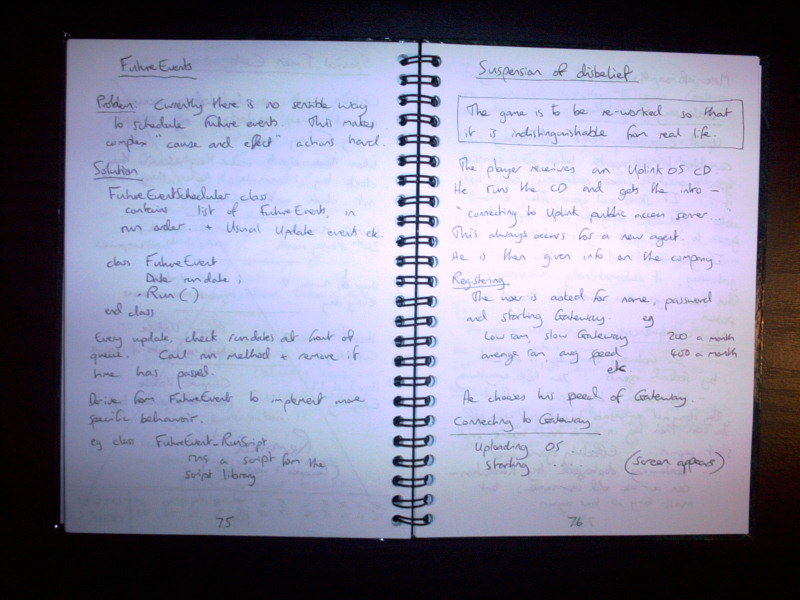 Future Events
Problem: Currently there is no sensible way
to schedule future events. This makes
complex "cause and effect" actions hard.
Solution
FutureEventScheduler class
contains list of FutureEvents, in
run order. + Usual Update events etc.
class FutureEvent
Date rundate;
Run()
end class
Every update, check rundates at front of
queue. Call run method + remove if
time has passed.
Derive from FutureEvents to implement more
specific behavoir.
eg class FutureEvent_RunScript
runs a script from the
script library
75
Suspension of disbelief
The game is to be re-worked so that
it is indistinguishable from real life.
The player receives an Uplink OS CD
He runs the CD and gets the intro -
"connecting to Uplink public access server..."
This always occurs for a new agent.
He is then given info on the company
Registering
The user is asked for name, password
and starting Gateway. eg
Low ram, slow Gateway 200 a month
average ram, avg speed 450 a month
etc
He chooses his speed of Gateway.
Connecting to Gateway
Uploading OS ...
starting ... (screen appears)
76